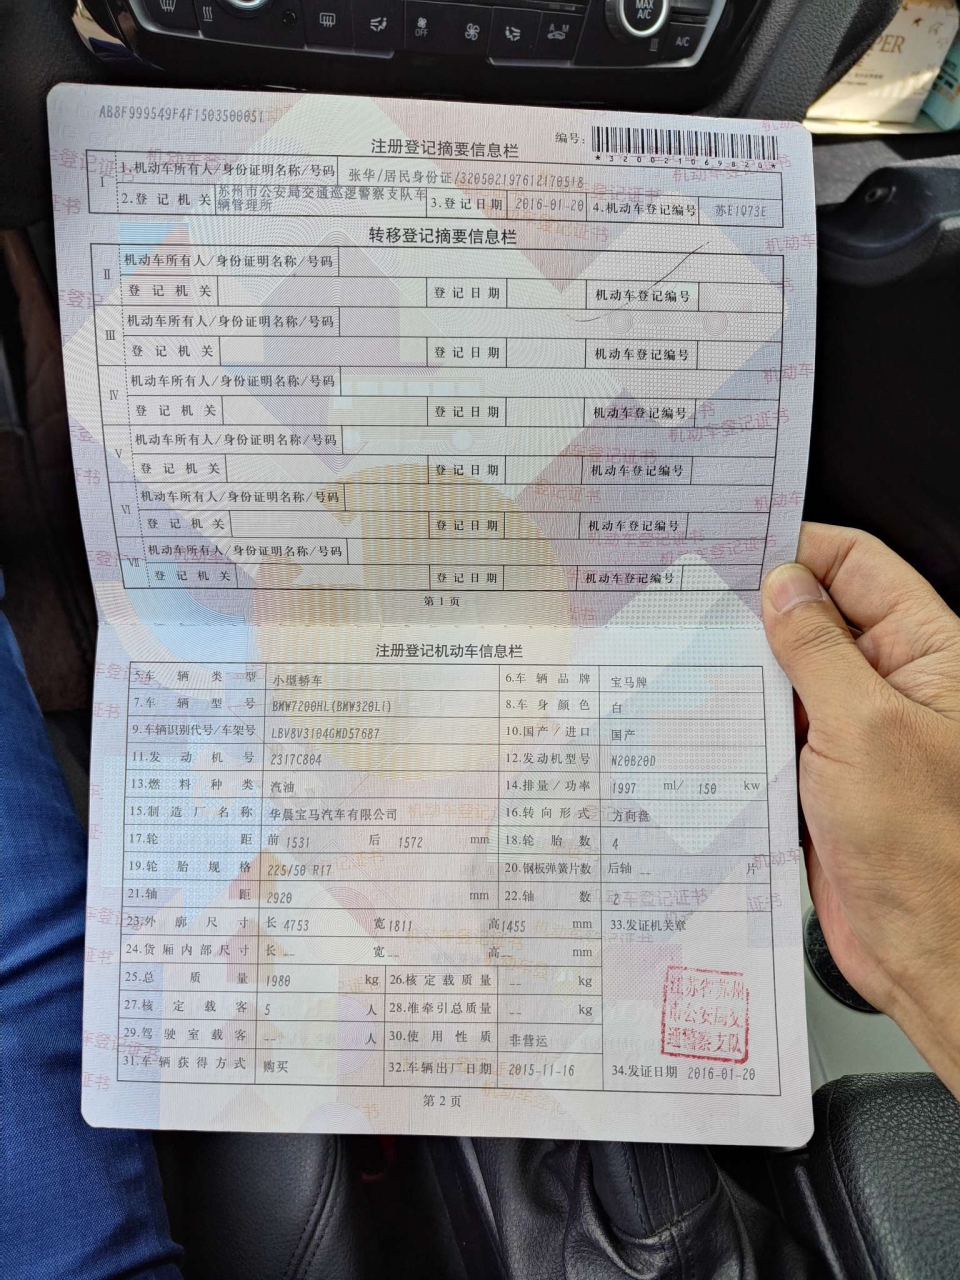 MAX A/C
OFF
A/C
PER
AB8F999549F4F1503500051
编号:
*320021069820*
注册登记摘要信息栏
I 1.机动车所有人/身份证明名称/号码 张华/居民身份证/320502197612170518
2.登记机关 苏州市公安局交通巡逻警察支队车辆管理所 3.登记日期 2016-01-20 4.机动车登记编号 苏E1Q73E
转移登记摘要信息栏
II 机动车所有人/身份证明名称/号码
登记机关 登记日期 机动车登记编号
III 机动车所有人/身份证明名称/号码
登记机关 登记日期 机动车登记编号
IV 机动车所有人/身份证明名称/号码
登记机关 登记日期 机动车登记编号
V 机动车所有人/身份证明名称/号码
登记机关 登记日期 机动车登记编号
VI 机动车所有人/身份证明名称/号码
登记机关 登记日期 机动车登记编号
VII 机动车所有人/身份证明名称/号码
登记机关 登记日期 机动车登记编号
第1页
注册登记机动车信息栏
5.车辆类型 小型轿车 6.车辆品牌 宝马牌
7.车辆型号 BMW7200HL(BMW320LI) 8.车身颜色 白
9.车辆识别代号/车架号 LBV8V3104GMD57687 10.国产/进口 国产
11.发动机号 2317C804 12.发动机型号 N20B20D
13.燃料种类 汽油 14.排量/功率 1997 ml/ 150 kw
15.制造厂名称 华晨宝马汽车有限公司 16.转向形式 方向盘
17.轮距 前 1531 后 1572 mm 18.轮胎数 4
19.轮胎规格 225/50 R17 20.钢板弹簧片数 后轴 -- 片
21.轴距 2920 mm 22.轴数 2
23.外廓尺寸 长 4753 宽 1811 高 1455 mm 33.发证机关章
24.货厢内部尺寸 长 -- 宽 -- 高 -- mm
25.总质量 1980 kg 26.核定载质量 -- kg
27.核定载客 5 人 28.准牵引总质量 -- kg
29.驾驶室载客 -- 人 30.使用性质 非营运
江苏省苏州
市公安局交
通警察支队
31.车辆获得方式 购买 32.车辆出厂日期 2015-11-16 34.发证日期 2016-01-20
第2页